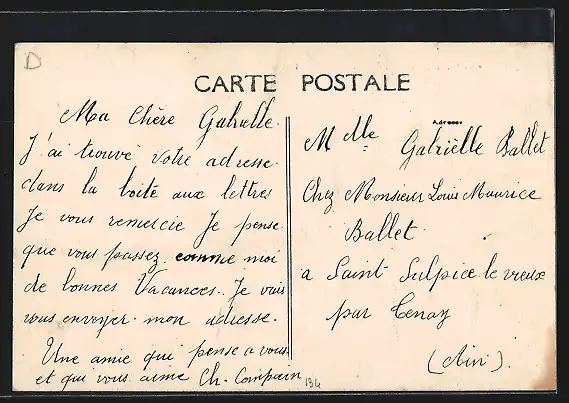 D
CARTE POSTALE
Ma Chère Gabrielle.
J'ai trouvé votre adresse
dans la boite aux lettres
Je vous remercie Je pense
que vous passez comme moi
de bonnes Vacances. Je vais
vous envoyer mon adresse.
Une amie qui pense a vous
et qui vous aime Ch. Compain
194
Adresse
Mlle Gabriëlle Ballet
Chez Monsieur Louis Maurice
Ballet
a Saint Sulpice le vieux
par Tenay
(Ain).